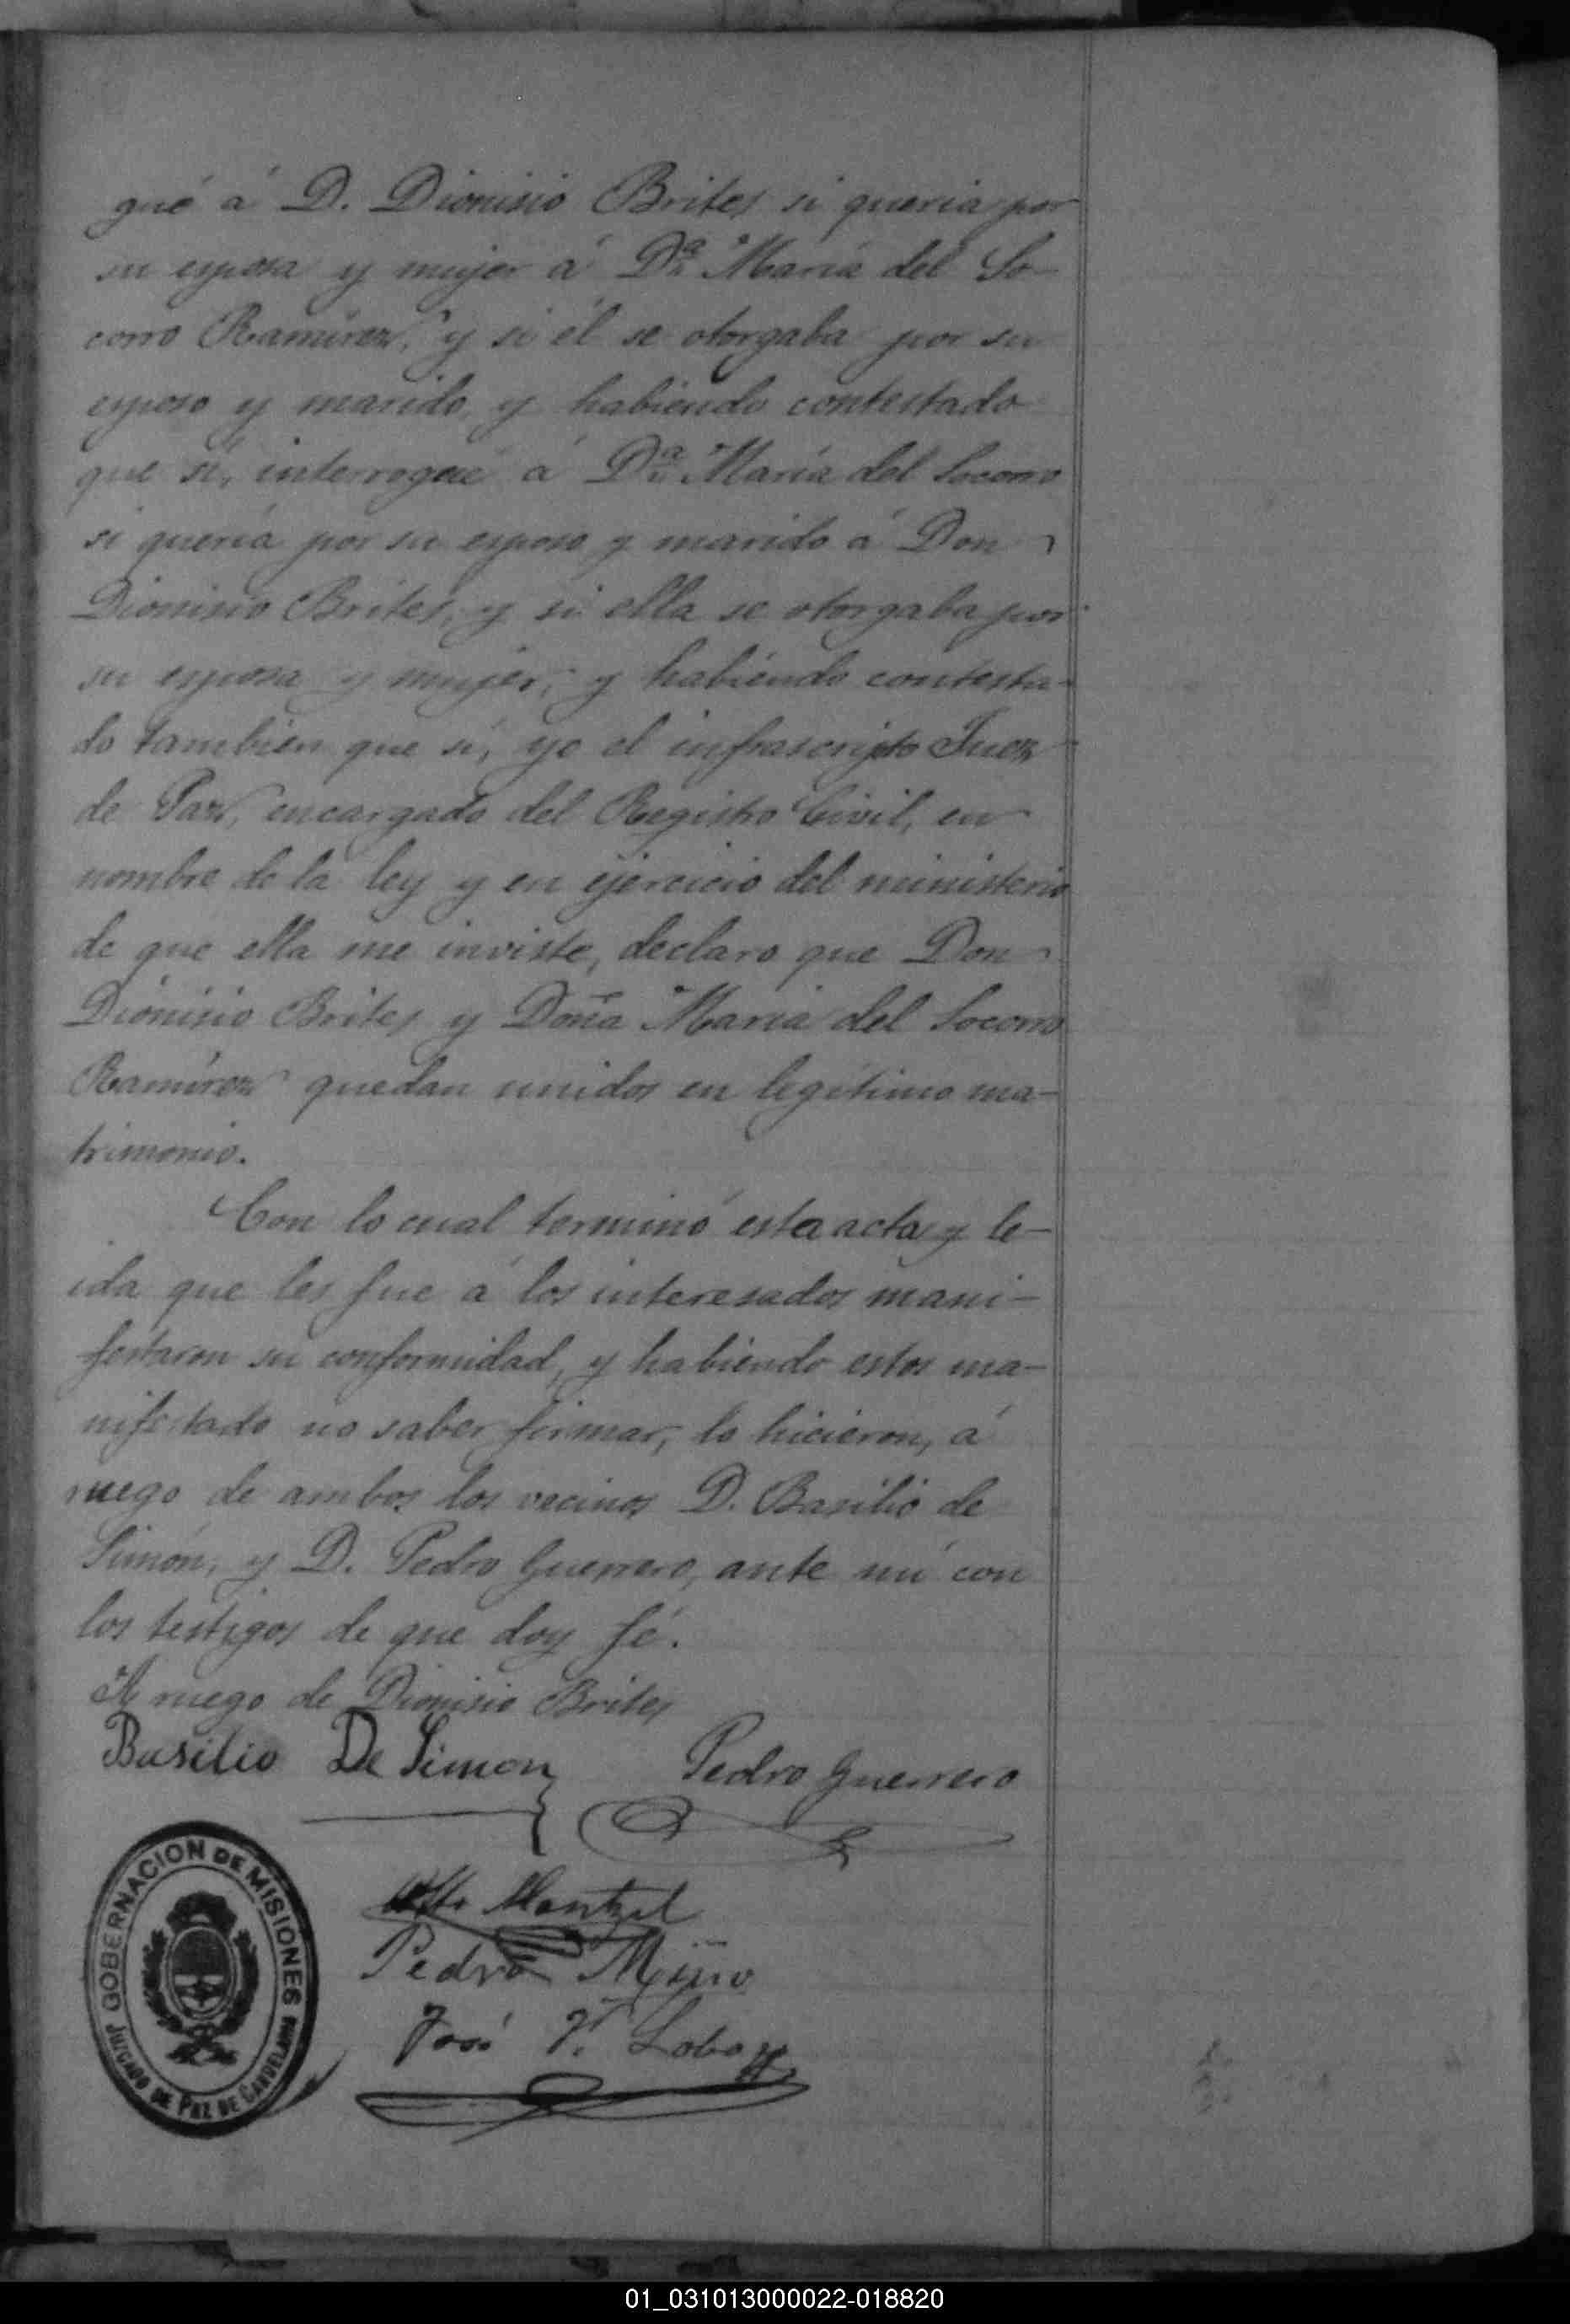 gué á D. Dionisio Brites si queria por
su esposa y mujer á Dª María del So-
corro Ramírez, y si él se otorgaba por su
esposo y marido, y habiendo contestado
que sí, interrogué á Dª María del Socorro
si quería por su esposo y marido á Don
Dionisio Brites, y si ella se otorgaba por
su esposa y mujer, y habiendo contesta-
do tambien que sí, yo el infrascripto Juez
de Paz, encargado del Registro Civil, en
nombre de la ley y en ejercicio del ministerio
de que ella me inviste, declaro que Don
Dionisio Brites y Doña María del Socorro
Ramírez quedan unidos en legítimo ma-
trimonio.
Con lo cual terminó esta acta y le-
ida que les fue á los interesados mani-
festaron su conformidad, y habiendo estos ma-
nifestado no saber firmar, lo hicieron, á
ruego de ambos los vecinos D. Basilio de
Simón, y D. Pedro Guerrero, ante mí con
los testigos de que doy fé.
A ruego de Dionisio Brites
Basilio De Simon Pedro Guerrero
Pedro
José Lobo
GOBERNACION DE MISIONES
JUZGADO DE PAZ DE CANDELARIA
01_031013000022-018820